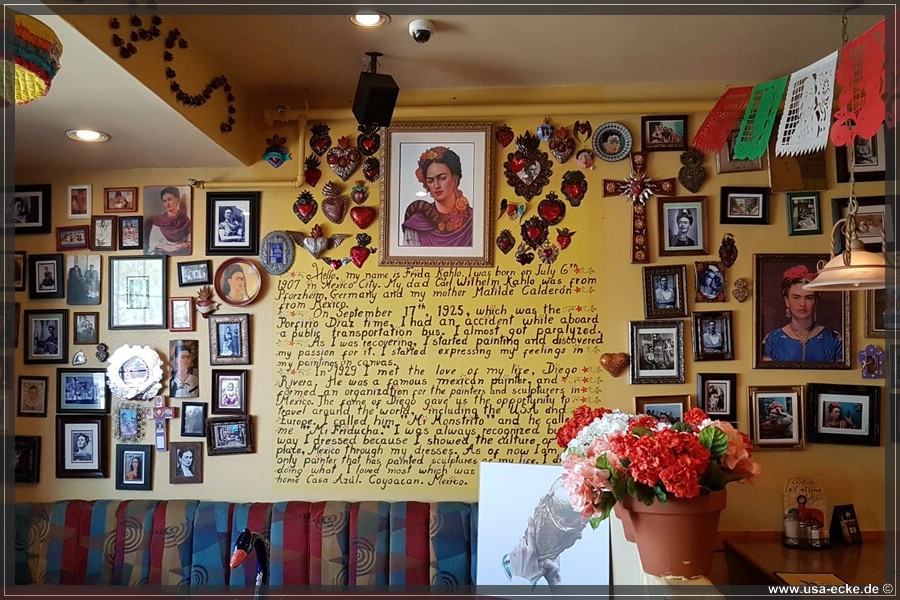 Hello, my name is Frida Kahlo. I was born on July 6th
1907 in Mexico City. My dad Carl Wilhelm Kahlo was from
Pforzheim, Germany and my mother Matilde Calderón
from Mexico.
On September 17th, 1925, which was the
Porfirio Diaz time, I had an accident while aboard
a public transportation bus. I almost got paralyzed.
As I was recovering, I started painting and discovered
my passion for it. I started expressing my feelings in
my paintings to canvas.
In 1929 I met the love of my life, Diego
Rivera. He was a famous mexican painter, and
formed an organization for the painters and sculptures in
Mexico. The fame of Diego gave us the opportunity to
travel around the world, including the USA and
Europe. I called him "Mi Monstrito" and he call
me "Mi Friducha". I was always recognized b
way I dressed because I showed the culture of
plate, Mexico through my dresses. As of now I am
only painter that has painted sculptures of my life. I d
doing what I loved most which was
home Casa Azul. Coyoacan. Mexico.
www.usa-ecke.de ©